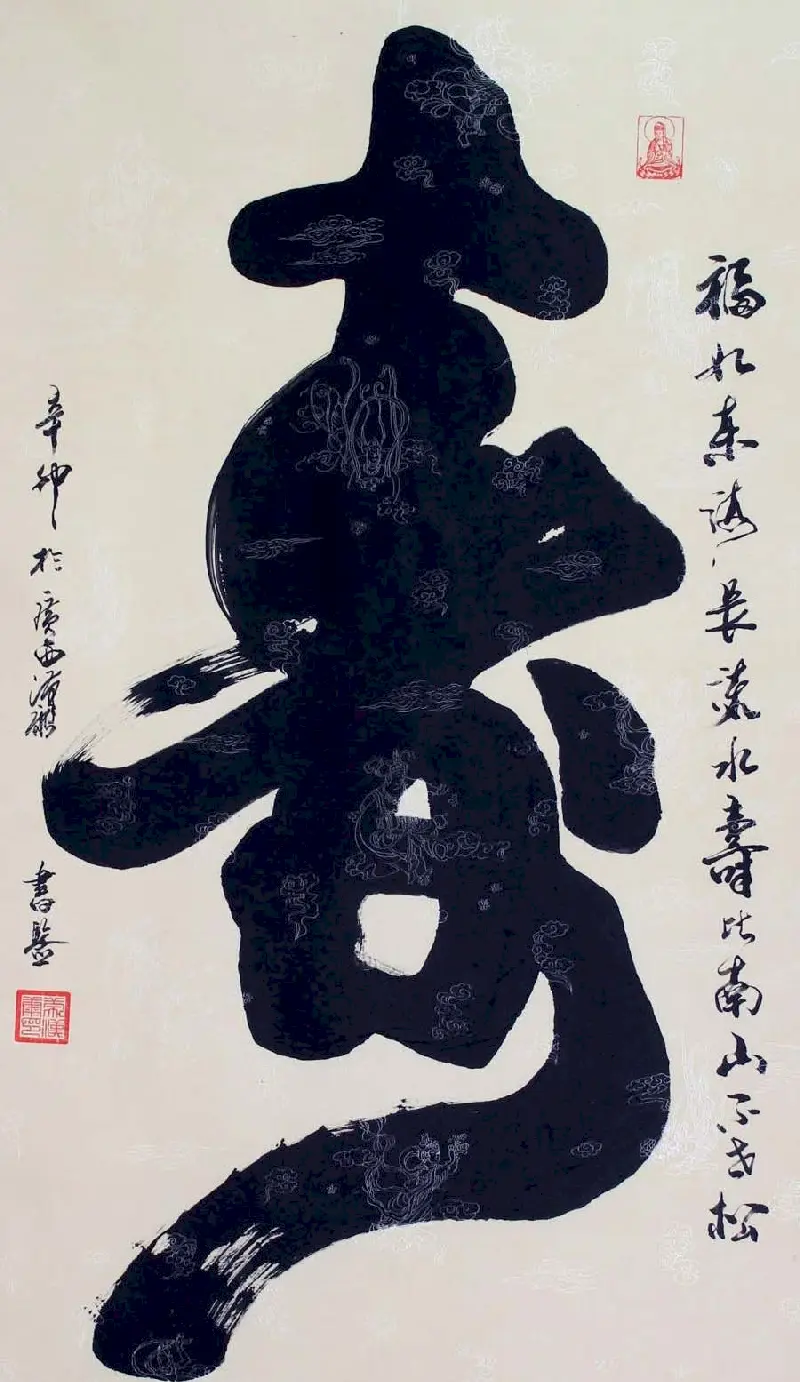 壽
福如東海長流水壽比南山不老松
辛卯於廣西漢彬
書鑒